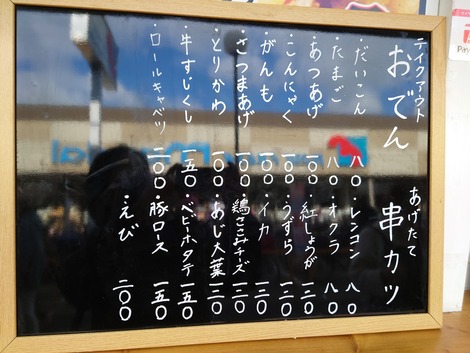 テイクアウト
おでん
・だいこん 八〇
・たまご 八〇
・あつあげ 一〇〇
・こんにゃく 一〇〇
・がんも 一〇〇
・さつまあげ 一〇〇
・とりかわ 一〇〇
・牛すじくし 一五〇
・ロールキャベツ 二〇〇
あげたて
串カツ
・レンコン 八〇
・オクラ 八〇
・紅しょうが 一二〇
・うずら 一二〇
・イカ 一二〇
・鶏ささみチーズ 一二〇
・あじ大葉 一二〇
・ベビーホタテ 一五〇
・豚ロース 一五〇
・えび 二〇〇